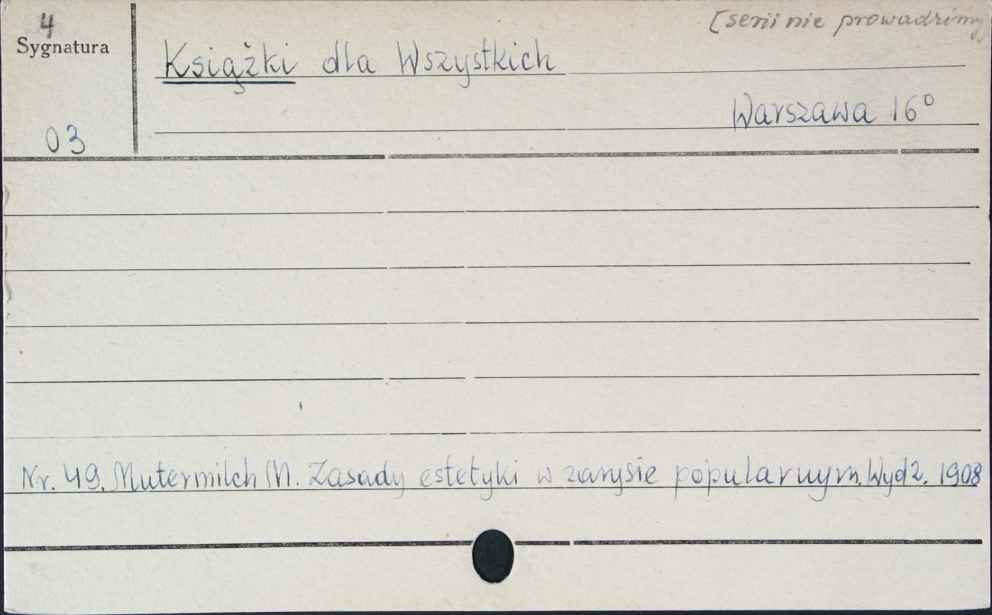 4
[serii nie prowadzimy]
Sygnatura
Książki dla Wszystkich
Warszawa 16°
03
Nr. 49. Mutermilch M. Zasady estetyki w zarysie popularnym. Wyd 2. 1908